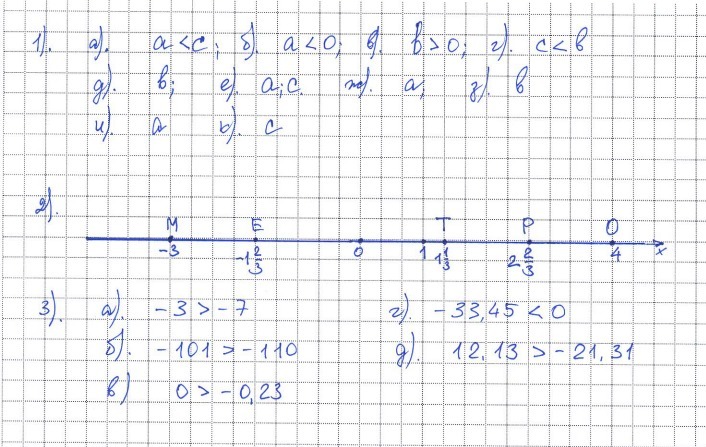 1). а). a < c; б). a < 0; в). b > 0; г). c < b
д). b; е). a; c. ж). a; з). b
и). a к). c
2). M E T P O
-3 -1 2/3 0 1 1 1/3 2 2/3 4 x
3). а). -3 > -7 г). -33,45 < 0
б). -101 > -110 д). 12,13 > -21,31
в) 0 > -0,23